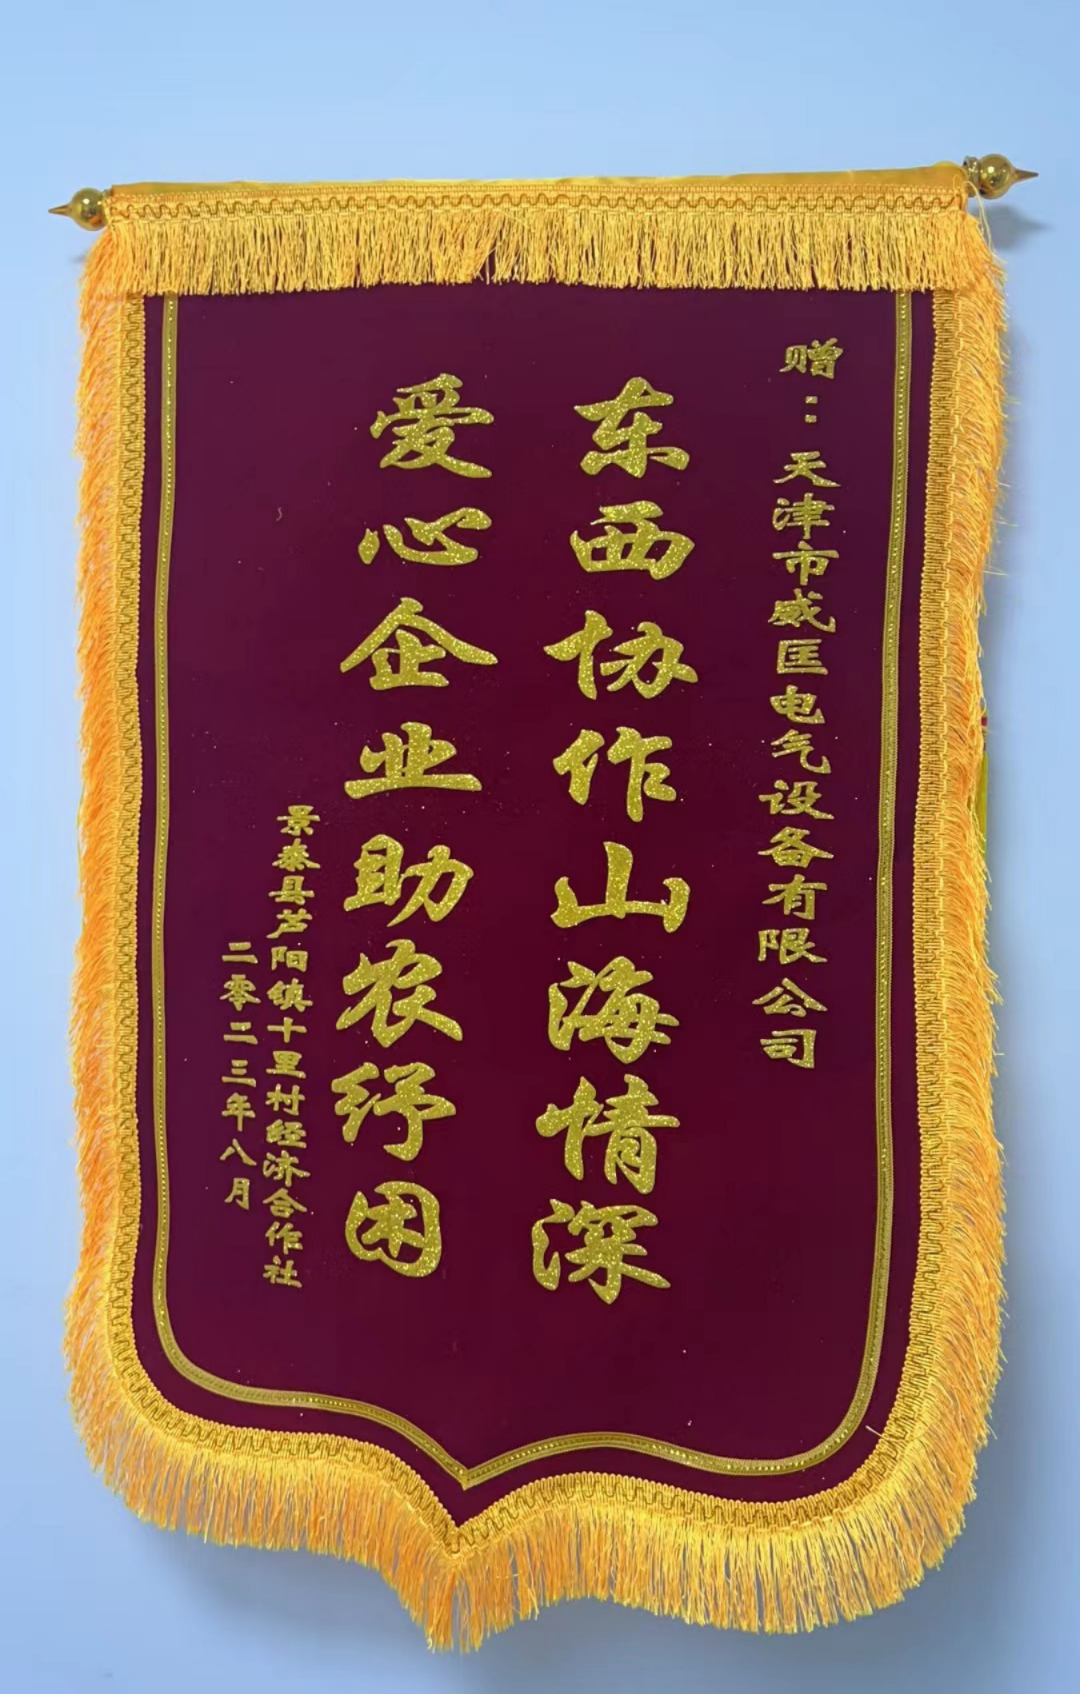 赠：天津市威匡电气设备有限公司
东西协作山海情深
爱心企业助农纾困
景泰县芦阳镇十里村经济合作社
二零二三年八月